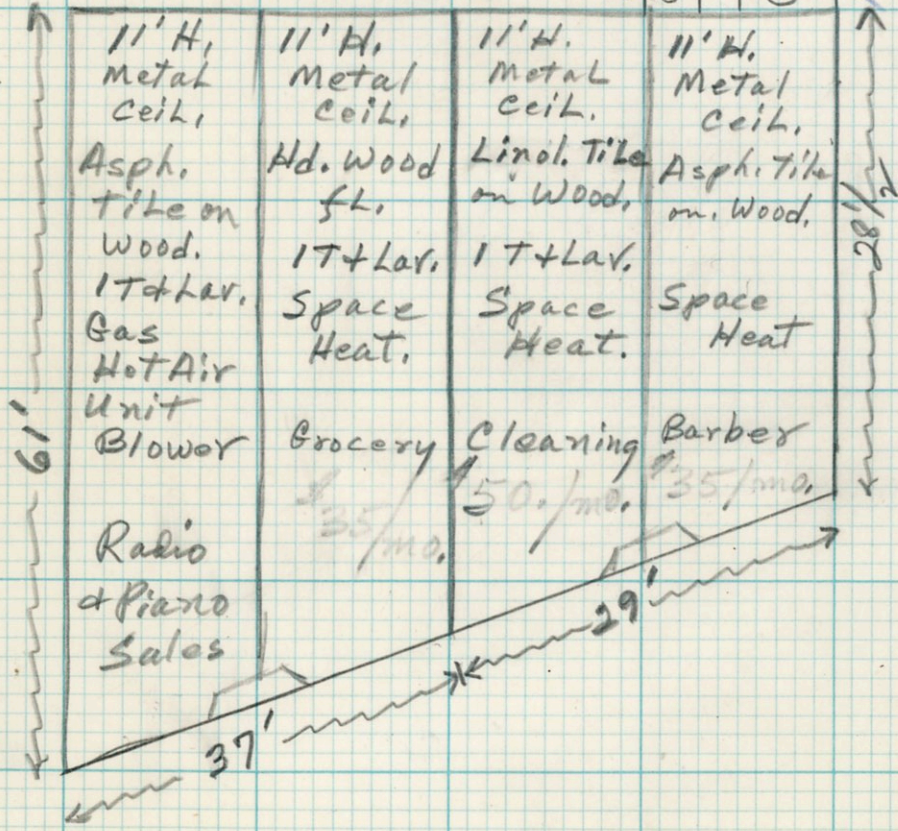 11' H.
Metal
Ceil.
Asph.
Tile on
Wood.
1 T & Lav.
Gas
Hot Air
Unit
Blower
Radio
& Piano
Sales
11' H.
Metal
Ceil.
Hd. Wood
fL.
1 T & Lav.
Space
Heat.
Grocery
$35/mo.
11' H.
Metal
Ceil.
Linol. Tile
on Wood.
1 T & Lav.
Space
Heat.
Cleaning
$50./mo.
11' H.
Metal
Ceil.
Asph. Tile
on. Wood.
Space
Heat
Barber
$35/mo.
61'
28 1/2
37'
29'